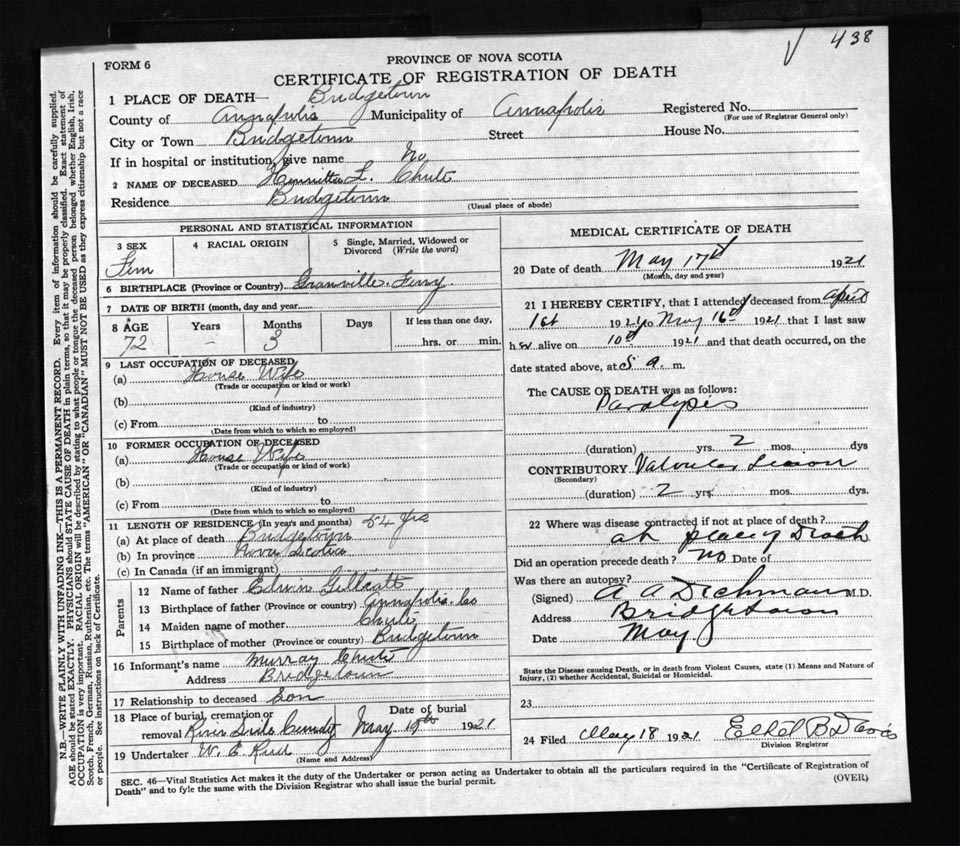 438
FORM 6
PROVINCE OF NOVA SCOTIA
CERTIFICATE OF REGISTRATION OF DEATH
1 PLACE OF DEATH— Bridgetown
County of Annapolis Municipality of Annapolis Registered No.
(For use of Registrar General only)
City or Town Bridgetown Street House No.
If in hospital or institution, give name No
2 NAME OF DECEASED Henrietta L. Chute
Residence Bridgetown
(Usual place of abode)
PERSONAL AND STATISTICAL INFORMATION
3 SEX 4 RACIAL ORIGIN 5 Single, Married, Widowed or Divorced (Write the word)
Fem
6 BIRTHPLACE (Province or Country) Granville Ferry
7 DATE OF BIRTH (month, day and year
8 AGE Years Months Days If less than one day,
72 - 3 hrs. or min.
9 LAST OCCUPATION OF DECEASED
(a) House Wife
(Trade or occupation or kind or work)
(b)
(Kind of industry)
(c) From to
(Date from which to which so employed)
10 FORMER OCCUPATION OF DECEASED
(a) House Wife
(Trade or occupation or kind of work)
(b)
(Kind of industry)
(c) From to
(Date from which to which so employed)
11 LENGTH OF RESIDENCE (In years and months) 54 yrs
(a) At place of death Bridgetown
(b) In province Nova Scotia
(c) In Canada (if an immigrant)
Parents
12 Name of father Edwin Gilliatt
13 Birthplace of father (Province or country) Annapolis Co
14 Maiden name of mother Chute
15 Birthplace of mother (Province or country) Bridgetown
16 Informant's name Murray Chute
Address Bridgetown
17 Relationship to deceased Son
18 Place of burial, cremation or Date of burial
removal River Side May 1921
19 Undertaker W. E.
(Name and Address)
MEDICAL CERTIFICATE OF DEATH
20 Date of death May 17th 1921
(Month, day and year)
21 I HEREBY CERTIFY, that I attended deceased from April
1st 1921 to May 16th 1921 that I last saw
her alive on 10th 1921 and that death occurred, on the
date stated above, at a. m.
The CAUSE OF DEATH was as follows:
Paralysis
(duration) yrs. 2 mos. dys
CONTRIBUTORY Valvular Lesion
(Secondary)
(duration) 2 yrs. mos. dys.
22 Where was disease contracted if not at place of death?
at place of Death
Did an operation precede death? no Date of
Was there an autopsy?
(Signed) A A Dechman M.D.
Address Bridgetown
Date May
State the Disease causing Death, or in death from Violent Causes, state (1) Means and Nature of
Injury, (2) whether Accidental, Suicidal or Homicidal.
23
24 Filed May 18 1921 Ethel B Davis
Division Registrar
SEC. 46—Vital Statistics Act makes it the duty of the Undertaker or person acting as Undertaker to obtain all the particulars required in the "Certificate of Registration of
Death" and to fyle the same with the Division Registrar who shall issue the burial permit. (OVER)
N.B.—WRITE PLAINLY WITH UNFADING INK—THIS IS A PERMANENT RECORD. Every item of information should be carefully supplied.
AGE should be stated EXACTLY. PHYSICIANS should STATE CAUSE OF DEATH in plain terms, so that it may be properly classified. Exact statement of
OCCUPATION is very important. RACIAL ORIGIN will be described by stating to what people or tongue the deceased person belonged whether English, Irish,
Scotch, French, German, Russian, Ruthenian, etc. The terms "AMERICAN" OR "CANADIAN" MUST NOT BE USED as they express citizenship but not a race
or people. See instructions on back of Certificate.